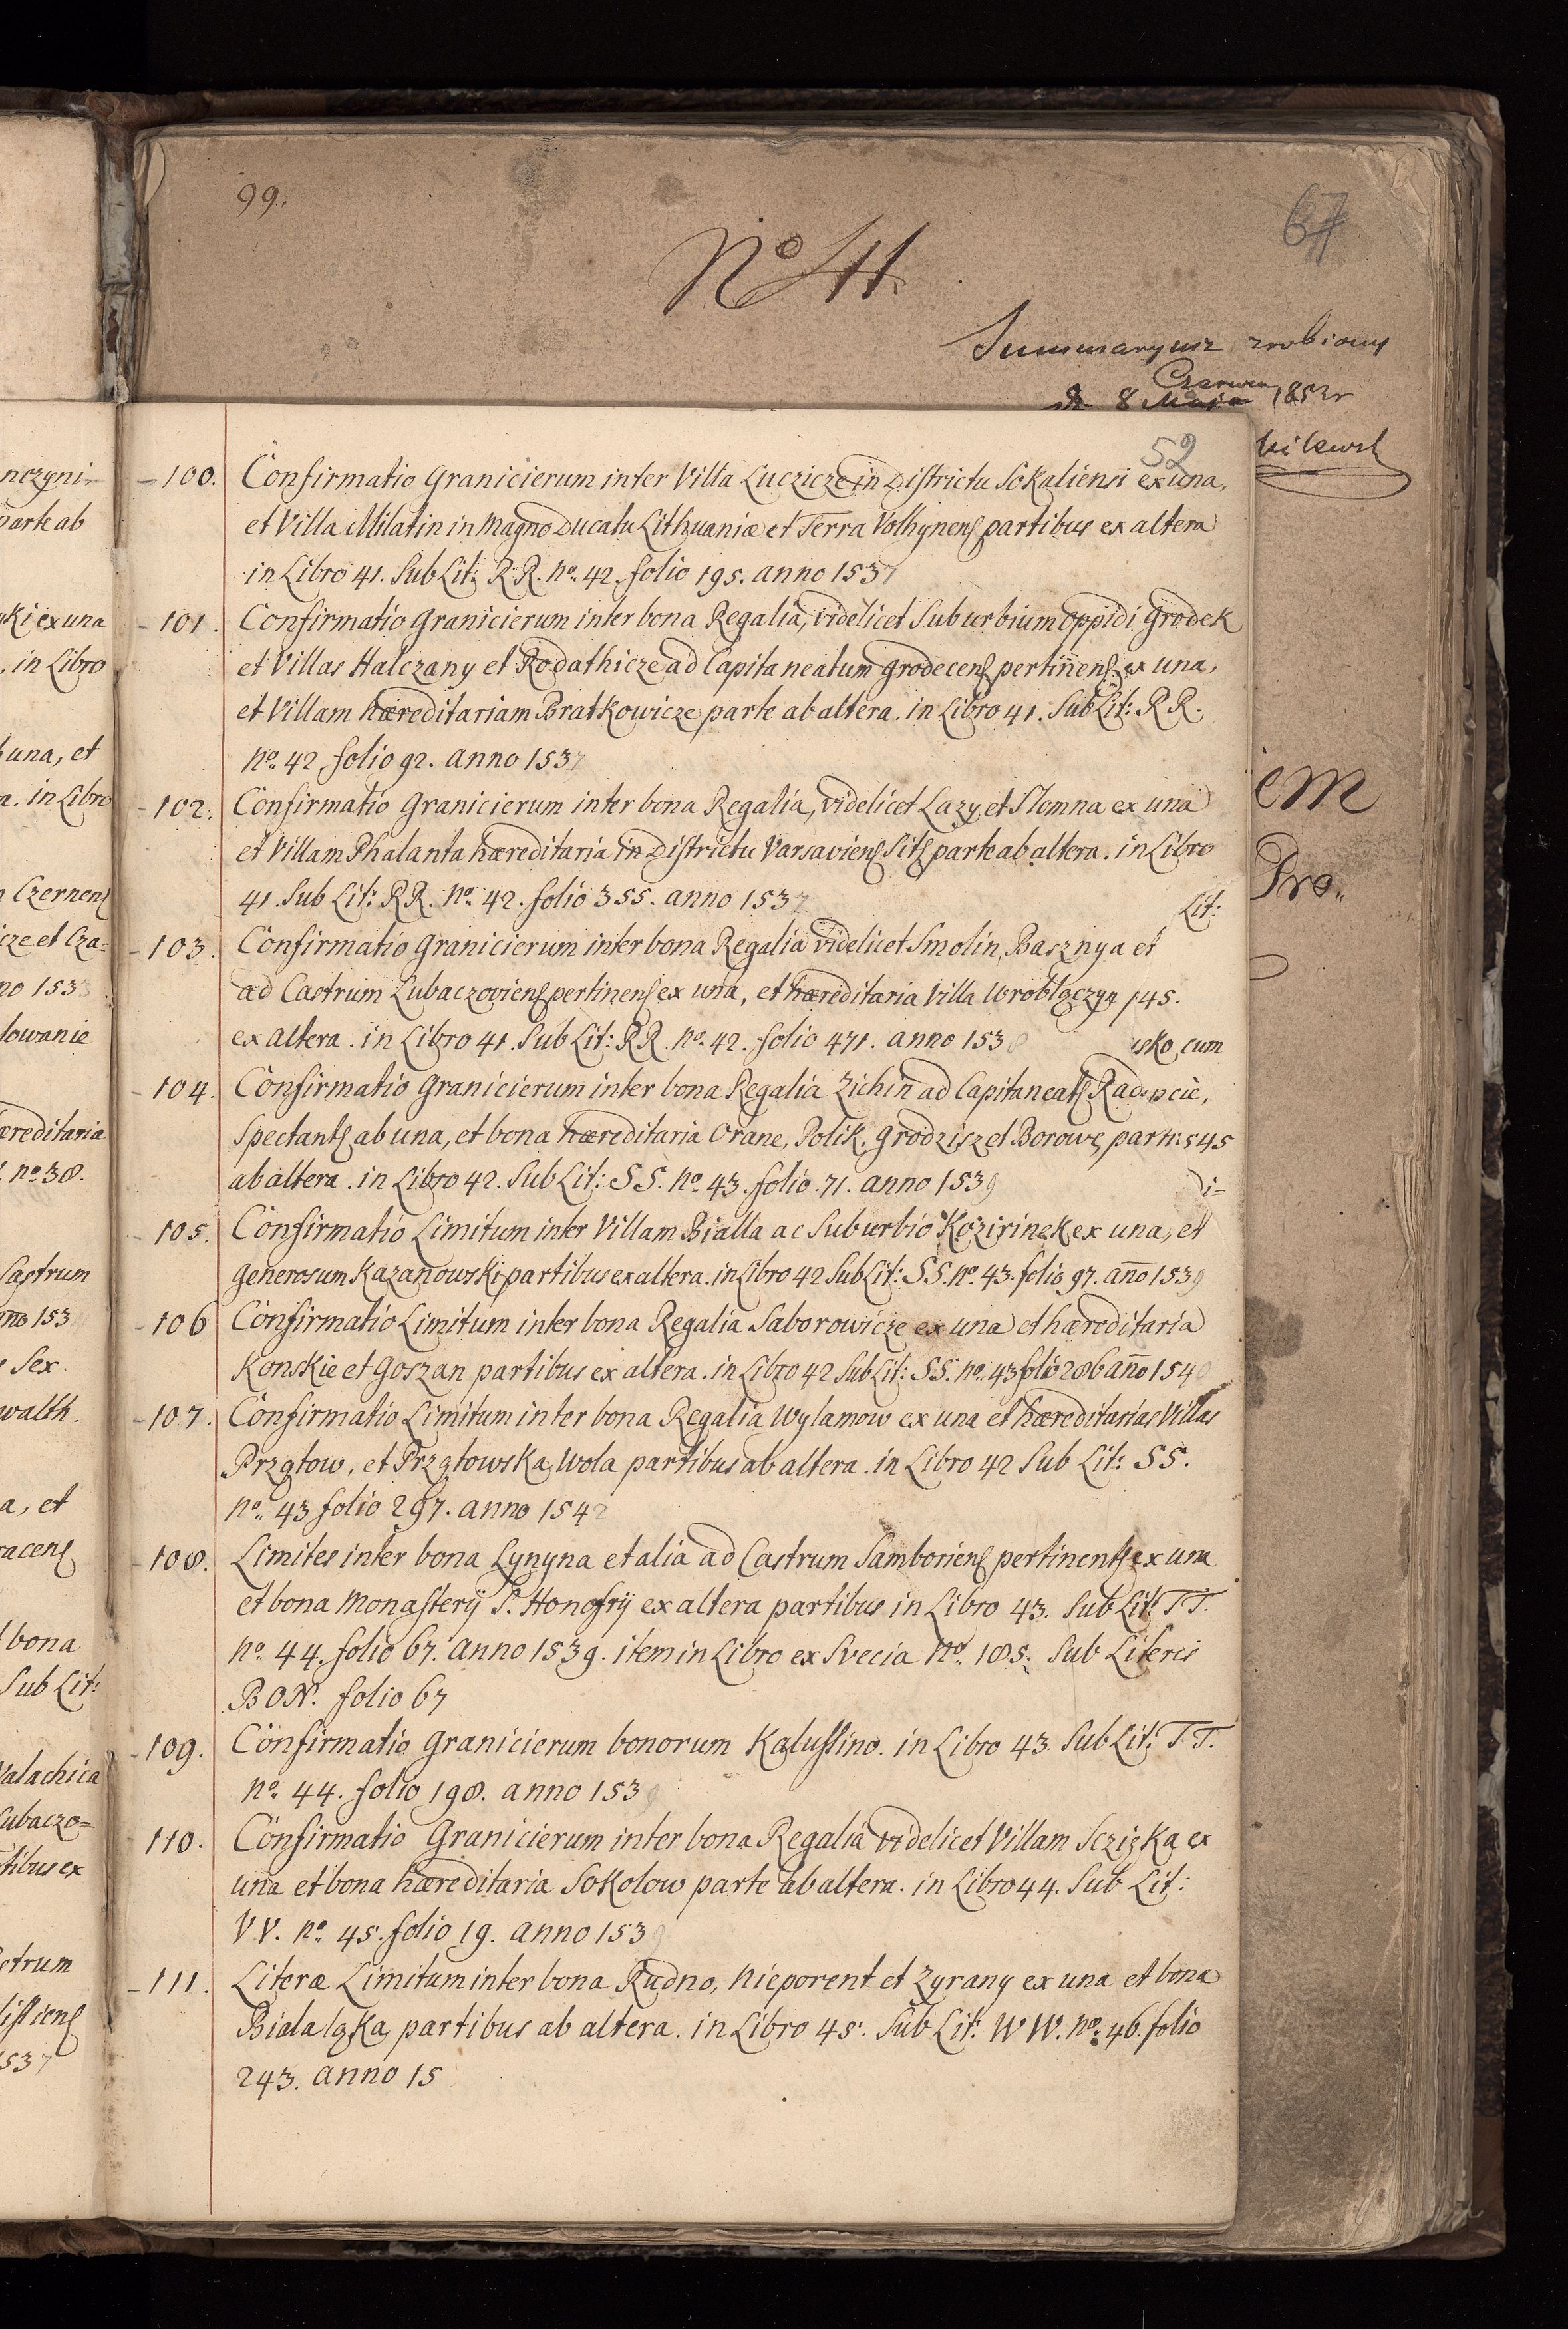 99.
67
No 44.
Summaryusz zrobiony
Czerwca
8 Maja 1852r
52
100. Confirmatio Granicierum inter Villa Luczicze in Districtu Sokaliensi ex una,
et Villa Milatin in Magno Ducatu Lithuaniæ et Terra Volhynens partibus ex altera
in Libro 41. Sub Lit: RR. No. 42. folio 195. anno 1537
101. Confirmatio Granicierum inter bona Regalia, videlicet Suburbium Oppidi Grodek
et Villas Halczany et Rodathicze ad Capitaneatum Grodecens pertinens ex una,
et Villam hæreditariam Bratkowicze parte ab altera. in Libro 41. Sub Lit: RR.
No. 42 folio 92. anno 1537
102. Confirmatio Granicierum inter bona Regalia, videlicet Lazy et Slomna ex una
et Villam Phalanta hæreditaria in Districtu Varsaviens Sits parte ab altera. in Libro
41. Sub Lit: RR. No. 42. folio 355. anno 1537
103. Confirmatio Granicierum inter bona Regalia videlicet Smolin, Basznya et
ad Castrum Lubaczoviens pertinens ex una, et hæreditaria Villa Wroblaczyn
ex altera. in Libro 41. Sub Lit: RR. No. 42. folio 471. anno 1538
104. Confirmatio Granicierum inter bona Regalia Zichin ad Capitaneats
Spectants ab una, et bona hæreditaria Orane, Polik, Grodzisz et Borowe,
ab altera. in Libro 42. Sub Lit: SS. No. 43. folio 71. anno 1539
105. Confirmatio Limitum inter Villam Bialla ac Suburbio Kozirinek ex una, et
Generosum Kazanowski partibus ex altera. in Libro 42 Sub Lit: SS. No. 43. folio 97. año 1539
106 Confirmatio Limitum inter bona Regalia Saborowicze ex una et hæreditaria
Konskie et Goszan partibus ex altera. in Libro 42 Sub Lit: SS. No. 43 folio 286 año 1540
107. Confirmatio Limitum inter bona Regalia Wylamow ex una et hæreditarias Villas
Przątow, et Przątowska Wola partibus ab altera. in Libro 42 Sub Lit: SS.
No. 43 folio 297. anno 1542
108. Limites inter bona Lynyna et alia ad Castrum Samboriens pertinents ex una
et bona Monasterÿ S. Honofrÿ ex altera partibus in Libro 43. Sub Lit: TT.
No. 44. folio 67. anno 1539. item in Libro ex Svecia No. 185. Sub Literis
BON. folio 67
109. Confirmatio Granicierum bonorum Kalussino. in Libro 43. Sub Lit: TT.
No. 44. folio 198. anno 1539
110. Confirmatio Granicierum inter bona Regalia videlicet Villam Sczizka ex
una et bona hæreditaria Sokolow parte ab altera. in Libro 44. Sub Lit:
VV. No. 45. folio 19. anno 1539
111. Literæ Limitum inter bona Rudno, Nieporent et Zyrany ex una et bona
Bialaląka partibus ab altera. in Libro 45. Sub Lit: WW. No. 46. folio
243. anno 15
Lit:
145.
cum
545
em
Pro,,